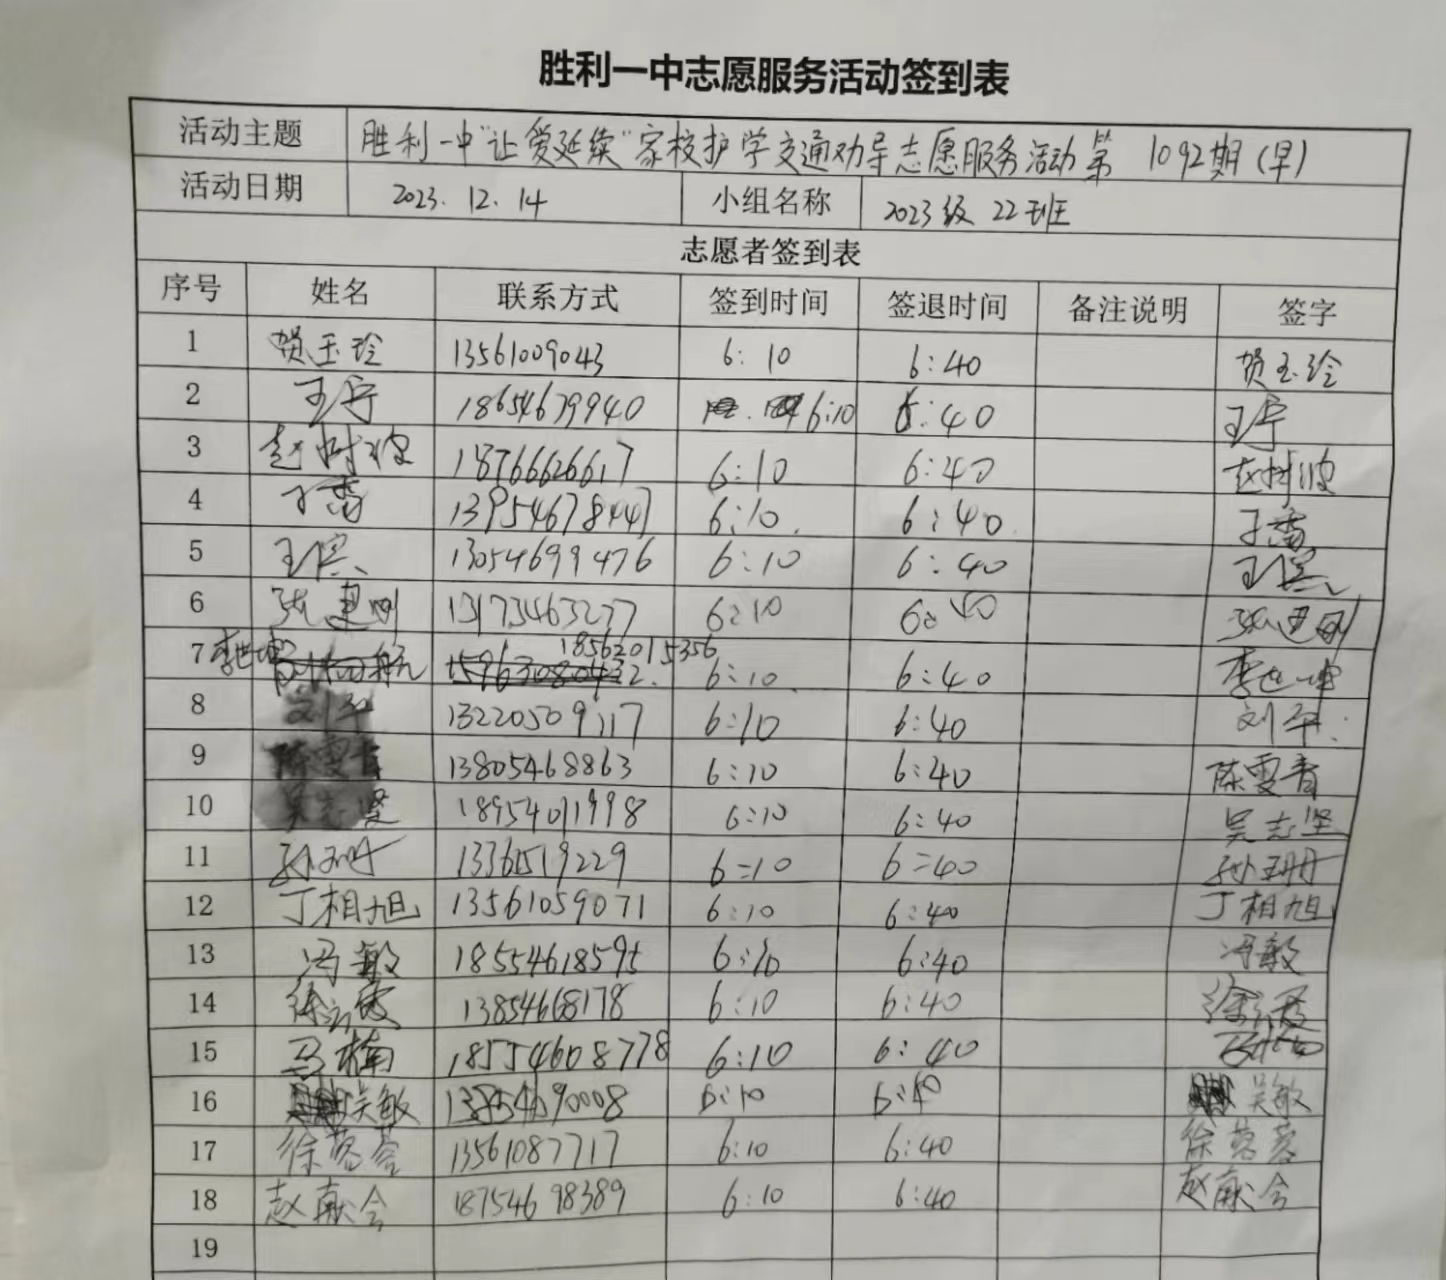 胜利一中志愿服务活动签到表
活动主题 胜利一中"让爱延续"家校护学交通劝导志愿服务活动第 1092期(早)
活动日期 2023.12.14 小组名称 2023级22班
志愿者签到表
序号 姓名 联系方式 签到时间 签退时间 备注说明 签字
1 贺玉玲 13561009043 6:10 6:40 贺玉玲
2 王宁 18654679940 6:10 6:40 王宁
3 赵树波 18766626617 6:10 6:40 赵树波
4 13954678447 6:10 6:40
5 王滨 13054699476 6:10 6:40 王滨
6 13173463277 6:10 6:40
7 李世坤 18562015356 6:10 6:40 李世坤
8 刘平 13220509117 6:10 6:40 刘平
9 陈雯青 13805468863 6:10 6:40 陈雯青
10 吴志坚 18954011998 6:10 6:40 吴志坚
11 孙珊 6:10 6:40 孙珊
12 丁相旭 13561059071 6:10 6:40 丁相旭
13 冯敏 18554618595 6:10 6:40 冯敏
14 13854668178 6:10 6:40
15 马楠 18554608778 6:10 6:40 马楠
16 吴敏 6:10 6:40 吴敏
17 徐蓉蓉 13561087717 6:10 6:40 徐蓉蓉
18 赵献会 18754698389 6:10 6:40 赵献会
19